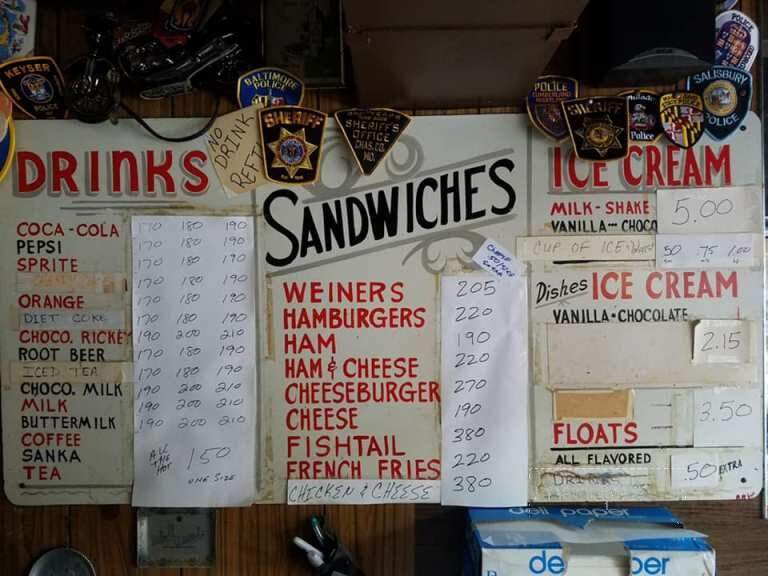 KEYSER
BALTIMORE
POLICE
SHERIFF
SHERIFF'S
OFFICE
CHAS. CO.
MD.
POLICE
CUMBERLAND
MARYLAND
SHERIFF
Police
POLICE
SALISBURY
POLICE
NO
DRINK
REFILL
DRINKS
COCA-COLA 170 180 190
PEPSI 170 180 190
SPRITE 170 180 190
170 180 190
ORANGE 170 180 190
DIET COKE 170 180 190
CHOCO. RICKEY 190 200 210
ROOT BEER 170 180 190
ICED TEA 170 180 190
CHOCO. MILK 190 200 210
MILK 190 200 210
BUTTERMILK 190 200 210
COFFEE
SANKA
TEA
ALL
THE
HOT
150
ONE SIZE
SANDWICHES
WEINERS 205
HAMBURGERS 220
HAM 190
HAM & CHEESE 220
CHEESEBURGER 270
CHEESE 190
FISHTAIL 380
FRENCH FRIES 220
CHICKEN & CHEESE 380
ICE CREAM
MILK-SHAKE 5.00
VANILLA-CHOCO
CUP OF ICE 50 75 1.00
Dishes ICE CREAM
VANILLA-CHOCOLATE
2.15
3.50
FLOATS
ALL FLAVORED
DRINKS
.50 EXTRA
deli paper